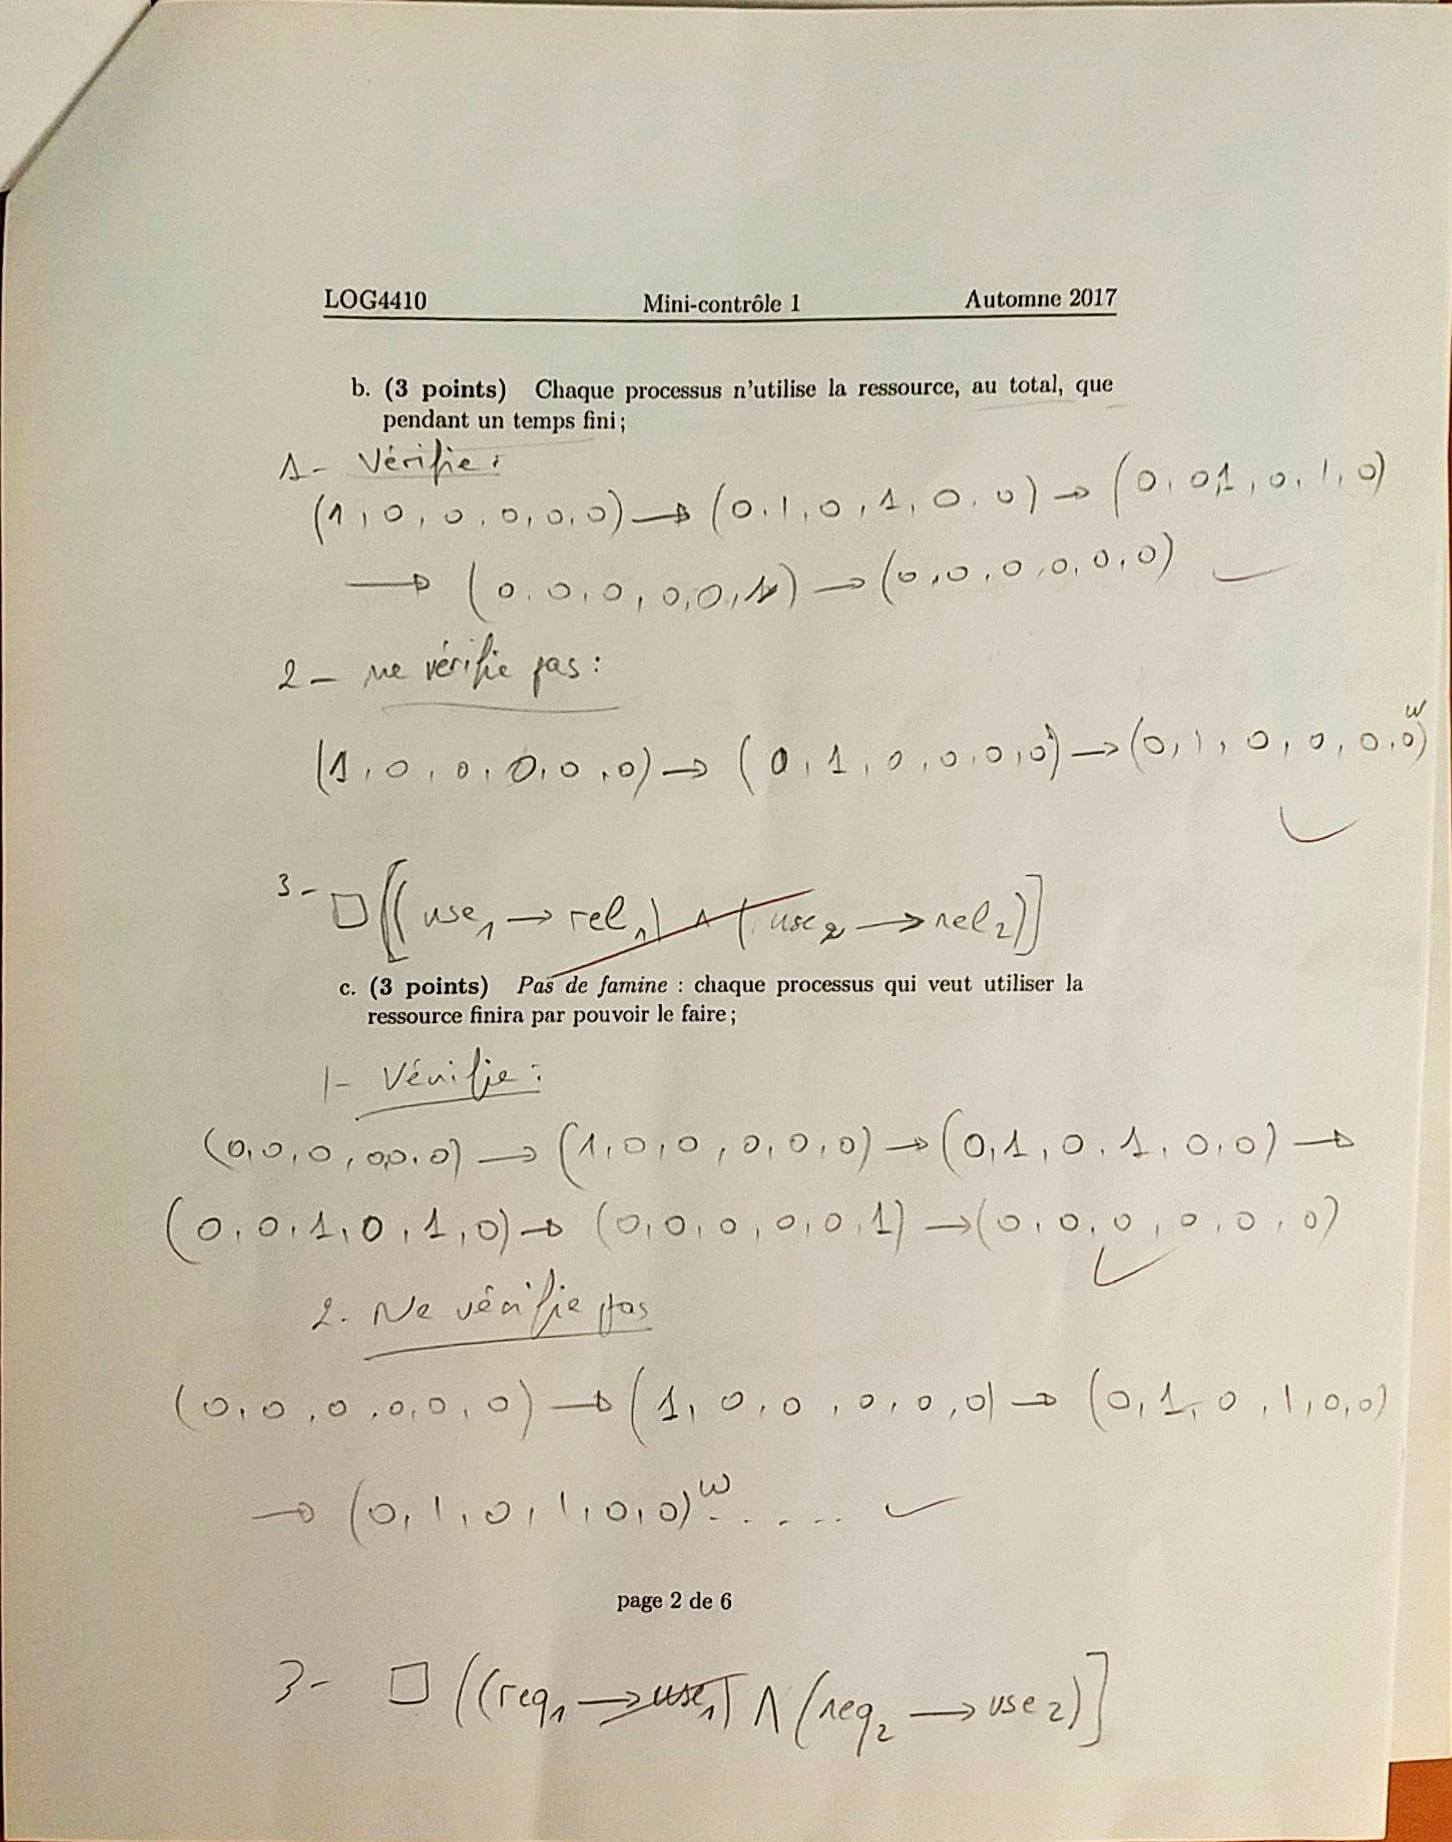 LOG4410 Mini-contrôle 1 Automne 2017
b. (3 points) Chaque processus n'utilise la ressource, au total, que
pendant un temps fini;
1- Vérifie:
(1,0,0,0,0,0) → (0,1,0,1,0,0) → (0,0,1,0,1,0)
→ (0,0,0,0,0,1) → (0,0,0,0,0,0)
2- ne vérifie pas:
(1,0,0,0,0,0) → (0,1,0,0,0,0) → (0,1,0,0,0,0)^ω
3- □[(use₁ → rel₁) ∧ (use₂ → rel₂)]
c. (3 points) Pas de famine : chaque processus qui veut utiliser la
ressource finira par pouvoir le faire;
1- Vérifie:
(0,0,0,0,0,0) → (1,0,0,0,0,0) → (0,1,0,1,0,0) →
(0,0,1,0,1,0) → (0,0,0,0,0,1) → (0,0,0,0,0,0)
2. Ne vérifie pas
(0,0,0,0,0,0) → (1,0,0,0,0,0) → (0,1,0,1,0,0)
→ (0,1,0,1,0,0)^ω.....
page 2 de 6
3- □((req₁ → use₁) ∧ (req₂ → use₂)]